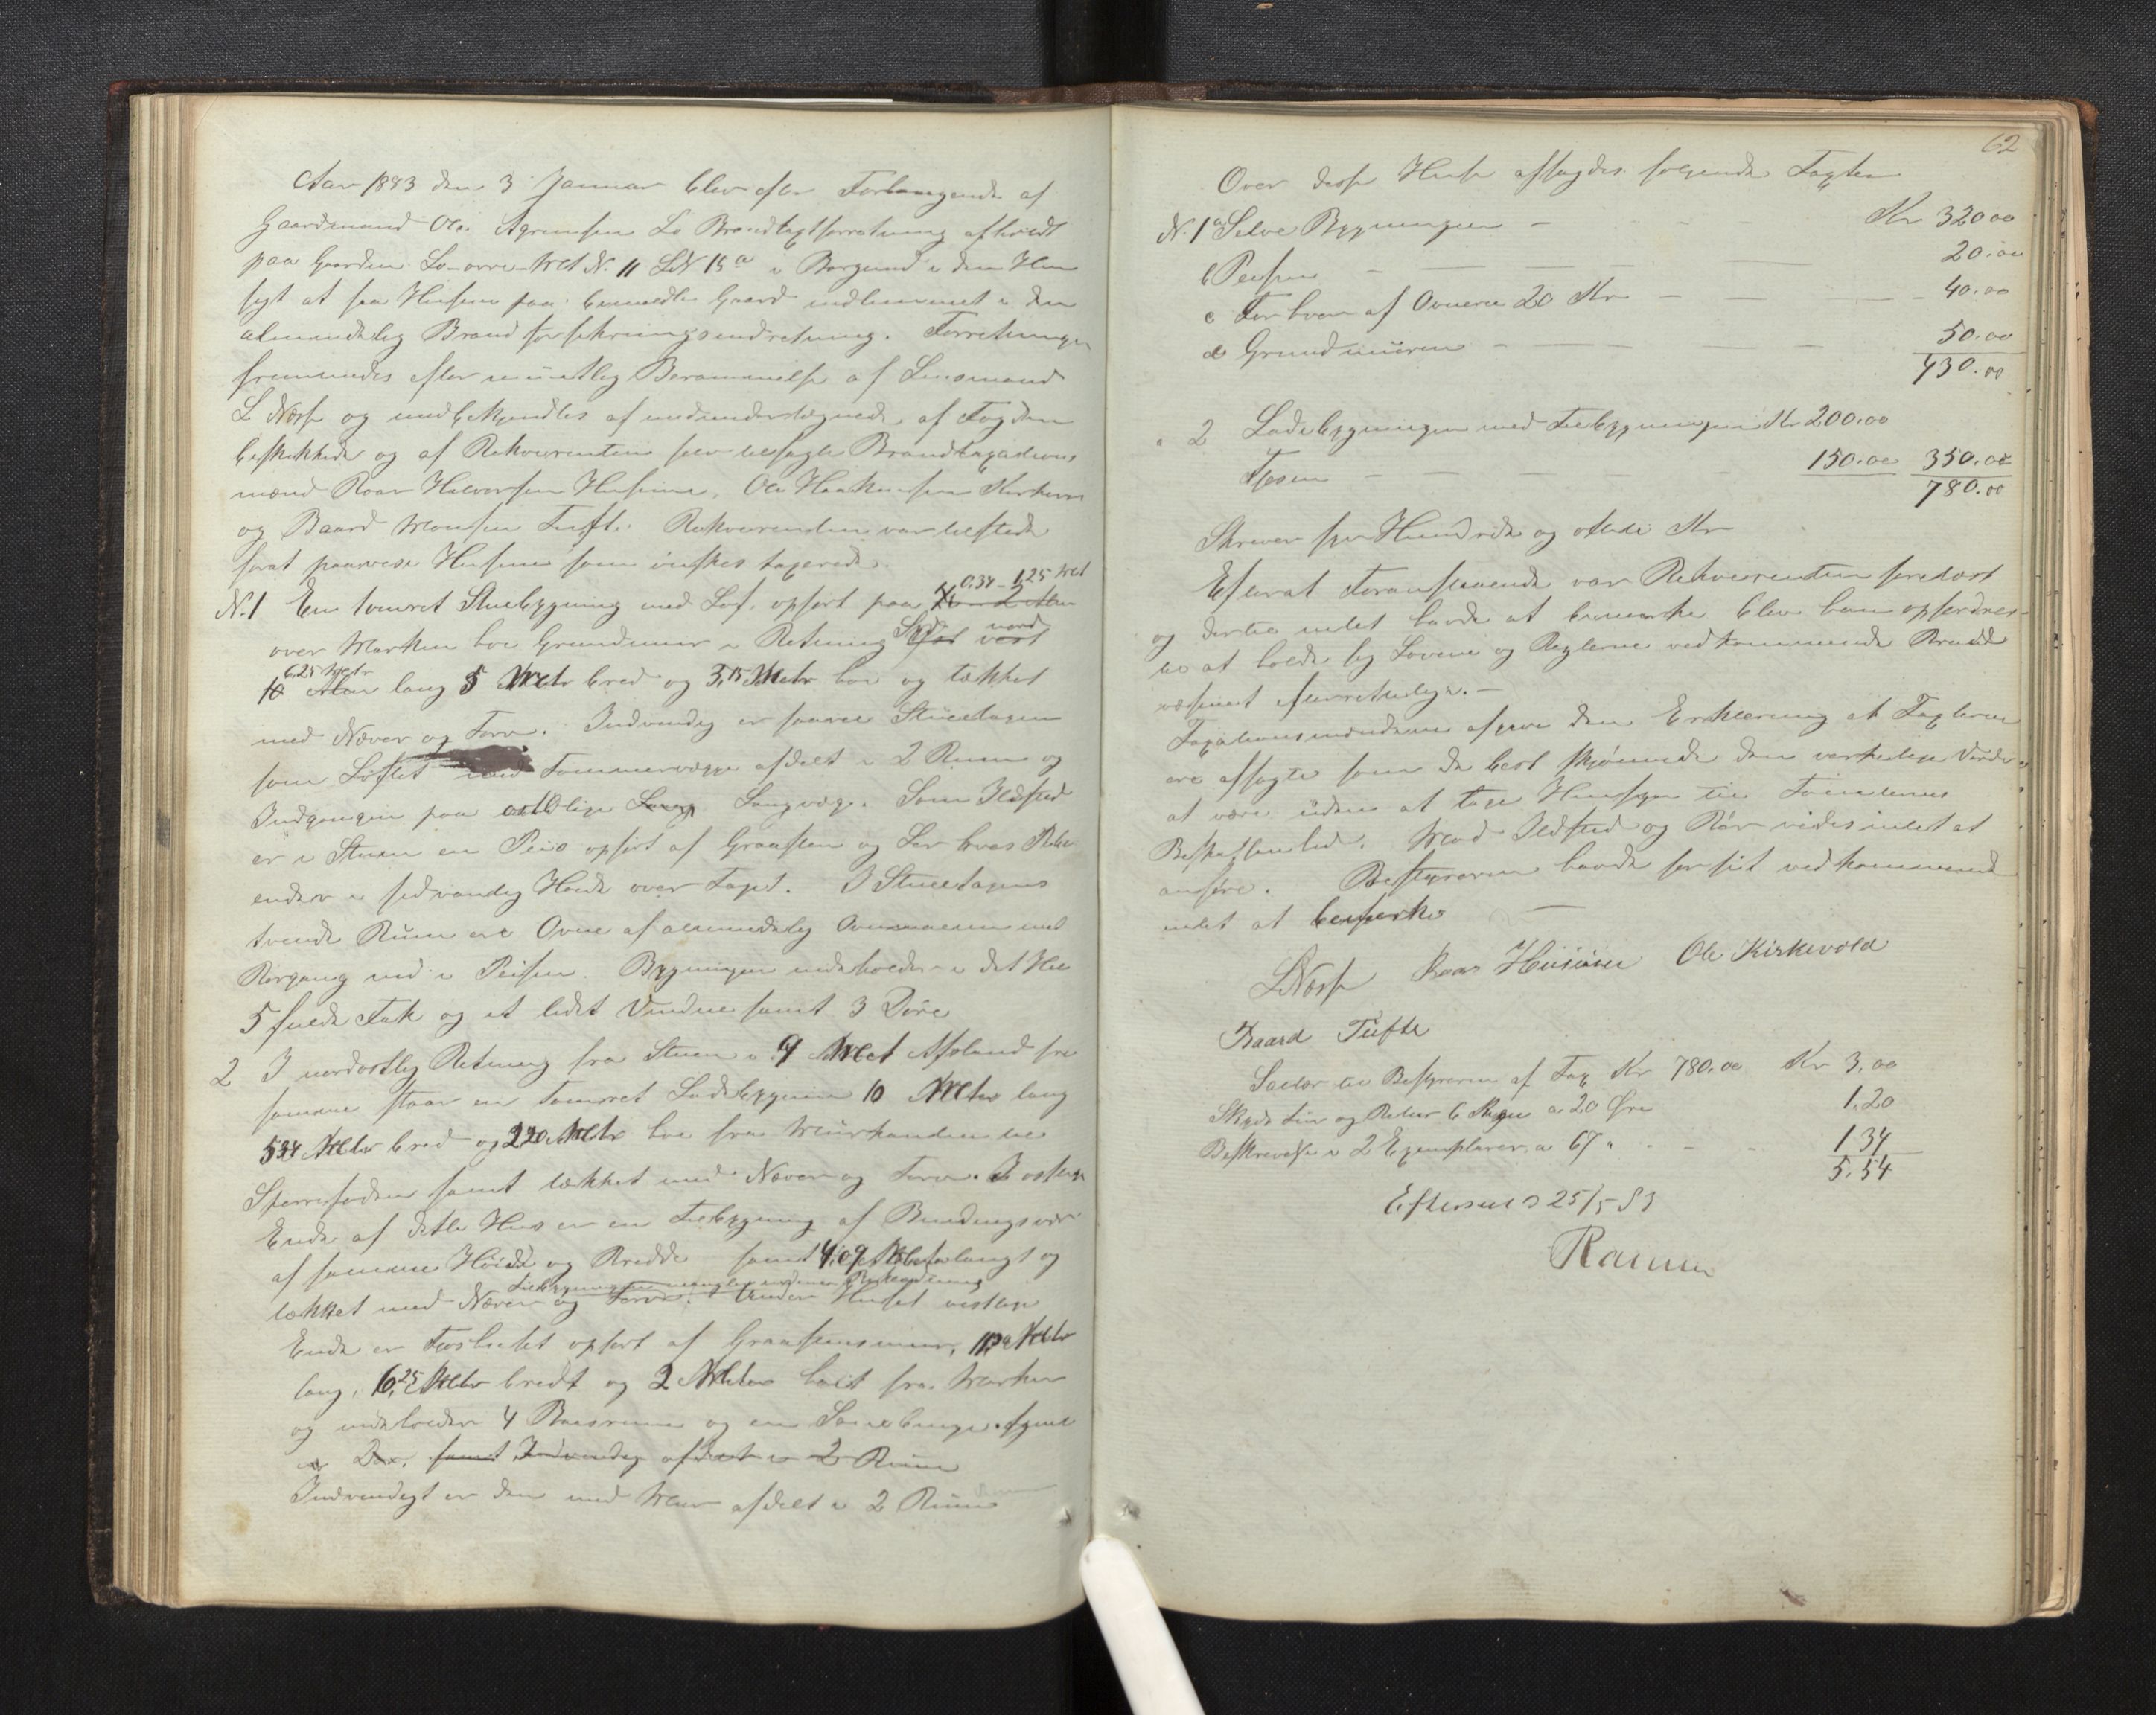 Aar 1883 den 3 Januar blev efter Forlangende af
Gaardmand Ole Lo Brandtaxtforretning afholdt
paa Gaarden Lo-øvre Mat N. 11 LN 15a i Borgund i den Hen
sigt at faa Husene paa bemeldte Gaard indlemmet i den
almindelig Brandforsikringsindretning. Forretningen
fremmedes efter mundtlig Berammelse af Lensmand
L Næss og medbekjendtes af medundertegnede, af Fogden
beskikkede og af Rekvirenten selv tilsagte Brandtaxations
mænd Roar Halvorsen Husum, Ole Haakensen Kirkevold
og Baard Monsen Tufte. Rekvirenten var tilstede
forat paavise Husene som ønskes taxerede.
0,34 - 1,25 Met
N. 1 En tømret Stuebygning med Loft, opført paa
over Marken høi Grundmur i Retning Syd nord
Øst vest
6,25 Metr
10 Alen lang 5 Metr bred og 3,15 Metr høi og tækket
med Næver og Torv. Indvendig er saavel Stueetagen
som Loftet med Tømmervægge afdelt i 2 Rum og
Indgangen paa østlige Lang Langvæg. Som Ildsted
er i Stuen en Peis opført af Graasten og Ler hvis Pibe
ender i sedvanlig Høide over Taget. I Stueetagens
tvende Rum ere Ovne af almindelig med
Rørgang ind i Peisen. Bygningen indeholder i det Hele
5 fulde Fak og et lidet Vindue samt 3 Døre
2 I nordostlig Retning fra Stuen i 9 Met Afstand fra
samme staar en tømret Ladebygning 10 Metr lang
5,34 Metr bred og 2,20 Metr høi fra Murkanden til
Sperrefoden samt tækket med Næver og Torv. I østlige
Ende af dette Hus er en Tilbygning af Bindingsværk
af samme Høide og Bredde samt 4,09 Metr langt og
Tilbygningen mangler endnu Beklædning
tækket med Næver og Torv. Under Huset vestlige
Ende er Fjøshuset opført af Graastensmur, Metr
lang, 6,25 Metr bredt og 2 Metr høit fra Marken
og indeholder 4 Baasrum og en Sauebinge.
er Dør. samt Indvendig afdelt i 2 Rum
Indvendigt er den med Mur afdelt i 2 Rum
62
Over disse Huse afsagdes følgende Taxter
N. 1 a Selve Bygningen - Kr 320.00
b Peisen - 20.00
c For hver af Ovnene 20 Kr - 40.00
d Grundmuren - 50.00
430.00
2 Ladebygningen med Tilbygningen Kr 200.00
Fjøsen - 150.00 350.00
780.00
Skriver syv Hundrede og otteti Kr
Efterat Foranstaaende var Rekvirenten forelæst
og dertil intet havde at bemærke blev han opfordret
til at holde sig Lovene og Reglerne vedkommende Brand
væsenet efterrettelige. -
Taxationsmændene afgave den Erklæring at Taxterne
ere afsagte som de best skjønnede den verkelige Værdi
at være uden at tage Hensyn til Tomternes
Beskaffenhed. Mod Ildsted og Rør vides intet at
anføre. Bestyreren havde for sit vedkommende
intet at bemærke -
L Næss Roar Husum Ole Kirkevold
Baard Tufte
Salær til Bestyreren af Tax Kr 780.00 Kr 3,00
Skyds Tur og Retur a 20 Øre 1,20
Beskrivelse i 2 Exemplarer a 67 " - - 1.34
5.54
Efterseet 25/5 83